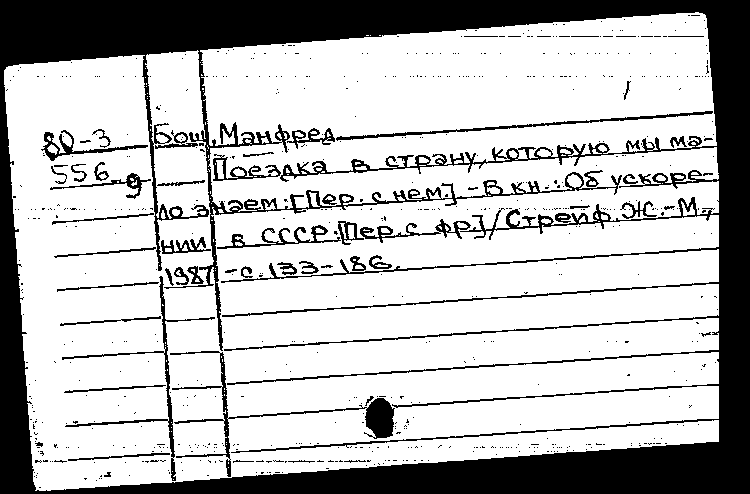 80-3 Бош, Манфред
556 9 Поездка в страну, которую мы ма-
ло знаем: [Пер. с нем.] - В кн.: Об ускоре-
нии в СССР: [Пер. с фр.] / Стрейф Ж. - М.,
1987 - с. 133-186.